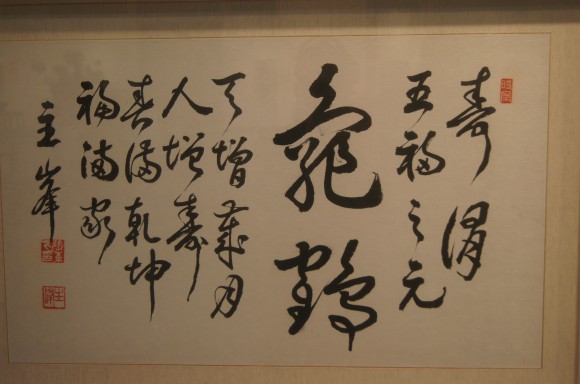 壽
五福之元
龜鶴
天增歲月
人增壽
春滿乾坤
福滿家
主峰